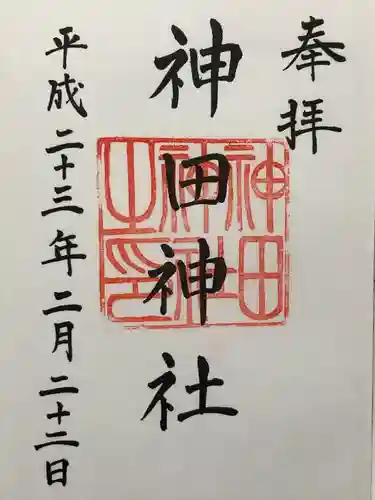 奉拝
神田神社
神田神社之印
平成二十三年二月二十二日